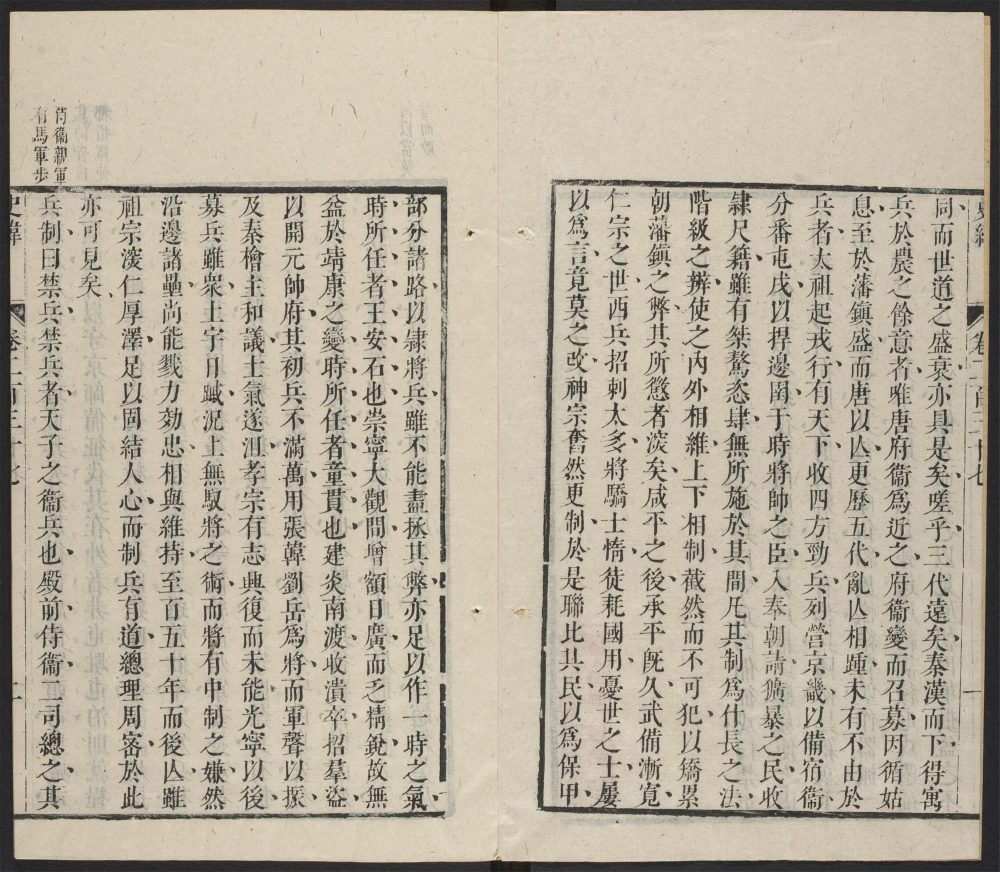 同而世道之盛衰亦具是矣嗟乎三代遠矣秦漢而下得寓
兵於農之餘意者唯唐府衞爲近之府衞變而召募因循姑
息至於藩鎮盛而唐以亾更歷五代亂亾相踵未有不由於
兵者太祖起戎行有天下收四方勁兵列營京畿以備宿衞
分番屯戌以捍邊圉于時將帥之臣入奉朝請獷暴之民收
隷尺籍雖有桀驁恣肆無所施於其間凡其制爲什長之法
階級之辨使之內外相維上下相制截然而不可犯以矯累
朝藩鎮之弊其所懲者深矣咸平之後承平旣久武備漸寛
仁宗之世西兵招刺太多將驕士惰徒耗國用憂世之士屢
以爲言竟莫之改神宗奮然更制於是聯比其民以爲保甲
部分諸路以隷將兵雖不能盡拯其弊亦足以作一時之氣
時所任者王安石也崇寧大觀間增額日廣而乏精銳故無
益於靖康之變時所任者童貫也建炎南渡收潰卒招羣盜
以開元帥府其初兵不滿萬用張韓劉岳爲將而軍聲以振
及秦檜主和議士氣遂沮孝宗有志興復而未能光寧以後
募兵雖衆土宇日蹴況上無馭將之術而將有中制之嫌然
沿邊諸壘尚能戮力効忠相與維持至百五十年而後亾雖
祖宗深仁厚澤足以固結人心而制兵有道總理周密於此
亦可見矣
兵制曰禁兵禁兵者天子之衞兵也殿前侍衞二司總之其
侍衞親軍
有馬軍步
史緯 卷二百三十七 一